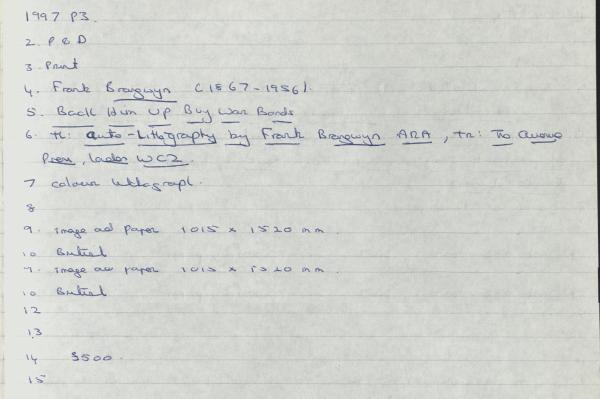 1997 P3.
2. P & D
3. Print
4. Frank Brangwyn (1867-1956).
5. Back Him Up Buy War Bonds
6. tl: auto-Lithography by Frank Brangwyn ARA, tr: The Avenue
Press, London WC2.
7 colour lithograph.
8
9. image and paper 1015 x 1520 mm.
10 British
9. image and paper 1015 x 1520 mm.
10 British
12
13
14 $500.
15